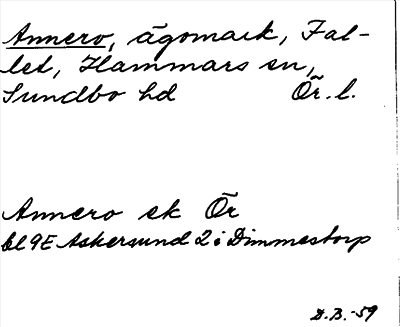 Annero, ägomark, Fal-
let, Hammars sn,
Sundbo hd Ör. l.
Annero ek Ör
bl 9E Askersund 2 i Dimmestorp
D.B.-59